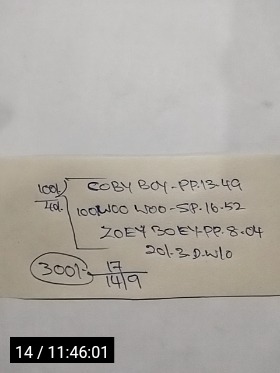 100/- COBY BOY-PP.13.49
40/- 100 WOO WOO-SP.16.52
ZOEY BOEY-PP.8.04
20/-3.D.W/O
300/- 17
14/9
14 / 11:46:01